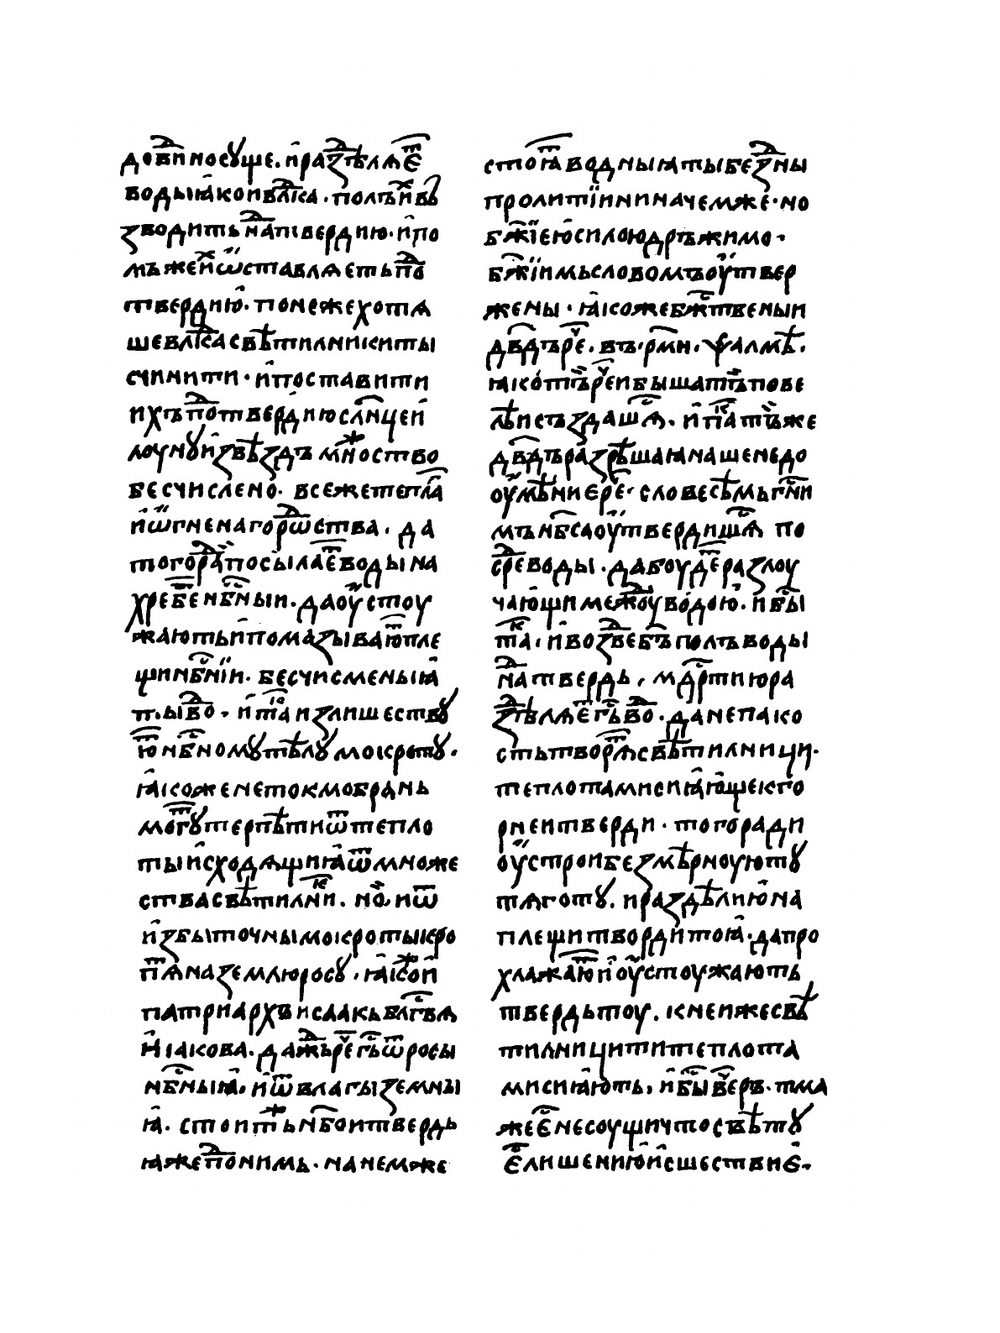 довⷣиносꙋще. и҆раꙁⷣѣлѧеⷮ҇
водыꙗ҆коивⷧ҇ісⷣа. полъⷯ҇и҆въ
ꙁводитьнаⷣтвердию. и҆по
мъжеⷯи҆ѿставлѧетьпоⷣ
твердию҆. понежехотѧ
шевⷧ҇ікⷣасвѣтилникиты
счинити. и҆поставити
ихъпоⷣтвердиюсл҃нцеи҆
лоунꙋи҆ꙁвѣꙁдъмноⷤство
бесчислено. всежетепл҃а
и҆ѿгненагорѡⷣства. да
тогораⷣпосылаеⷮводына
хребеⷮнб҃ныи. даоу҆стоу
жаютьи҆помаꙁываюⷮпле
щинб҃нїи. бесчисменыꙗ҆
тꙑвоⷣ. и҆таⷦиꙁлишествꙋ
юⷮнб҃номꙋтѣлꙋмокротꙋ.
ꙗ҆коженетокмобрань
могꙋⷮтерпѣтиѿтепло
тыи҆сходѧщиꙗ҆ѿмноже
ствасвѣтилниⷦ. но҆иѿ
и҆ꙁбыточнымокротыкро
пⷮѧнаꙁемлюросꙋ. ꙗ҆коⷤи҆
патриархъисаакъблг҃вѧ
и҆ꙗкова. дажⷣьречⷱ҇гь҃ѿросы
нб҃ныꙗ҆. и҆ѿвлагыꙁемны
ꙗ҆. стоитⷤьнб҃оитвердь
ꙗжепоⷣнимь. нанемже
стоꙗⷮводныꙗтыбеꙁⷣны
пролитїининачемже. но
бж҃їею҆силоюдръжимо.
бж҃їимьсловомъоу҆твер
жены. ꙗ҆кожебжⷭ҇твеныи
дв҃дъреⷱ҇. въ. рм҃и. ѱалмѣ.
ꙗкотъⷨ҇реⷱ҇ибышатѣпове
лѣистъꙁдашⷭ҇ѧ. и҆паⷦтъⷤже
дв҃дъраꙁрѣшаꙗнашенедо
оу҆мѣниереⷱ҇. словесѣмьгн҃и
мънб҃саоу҆твердишⷭ҇ѧ по
среⷣводы. дабоудеⷮраꙁлоу
чающимежⷣоуводою҆. ибы҃
таⷦ. и҆воꙁведеⷭ҇ъполъводы
наⷣтвердь. мдⷭ҇ртиюра
ꙁⷣѣлѧе҆гь҃воⷣ. данепако
стьтворѧⷮсвѣтилници.
теплотамисиꙗ҆ю҆щекго
рнеитверди. тогоради
оу҆строибеꙁмѣрноуютꙋ
тѧготꙋ. и҆раꙁдѣлию҆на
плещитвордитоꙗ҆. дапро
хлажаюⷮи҆оу҆стоужають
твердьтоу. кнеижесвѣ
тилницититеплота
мисиꙗ҆ють, и҆бы҃веⷱ҇ръ. тма
жееⷭ҇несоущичтосвѣтꙋ
еⷭ҇лишению҆и҆сшествие҆.